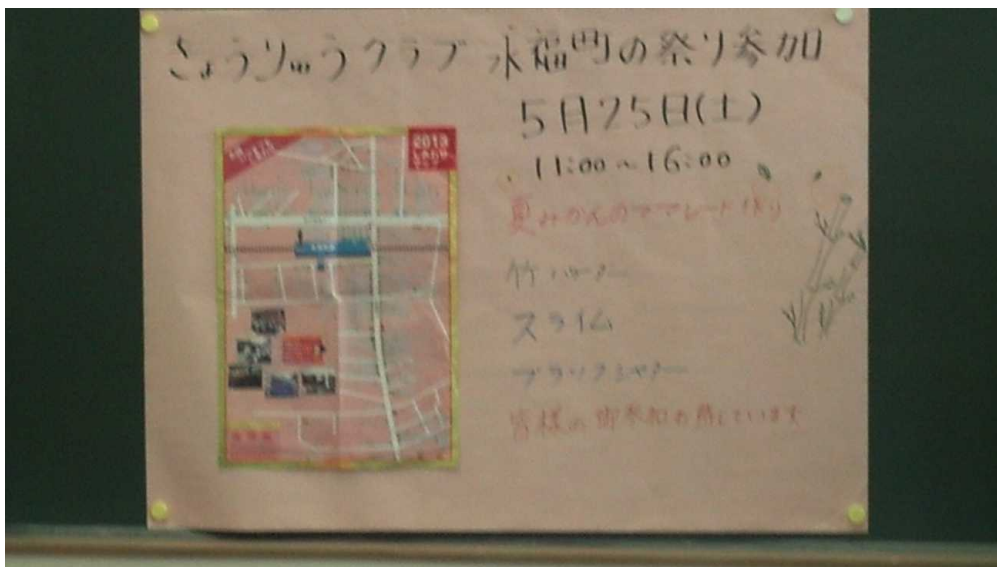 きょうりゅうクラブ 永福町の祭り参加
5月25日(土)
11:00~16:00
夏みかんのママレード作り
竹
スライム
ブラックシアター
皆様の御参加お待しています
2013